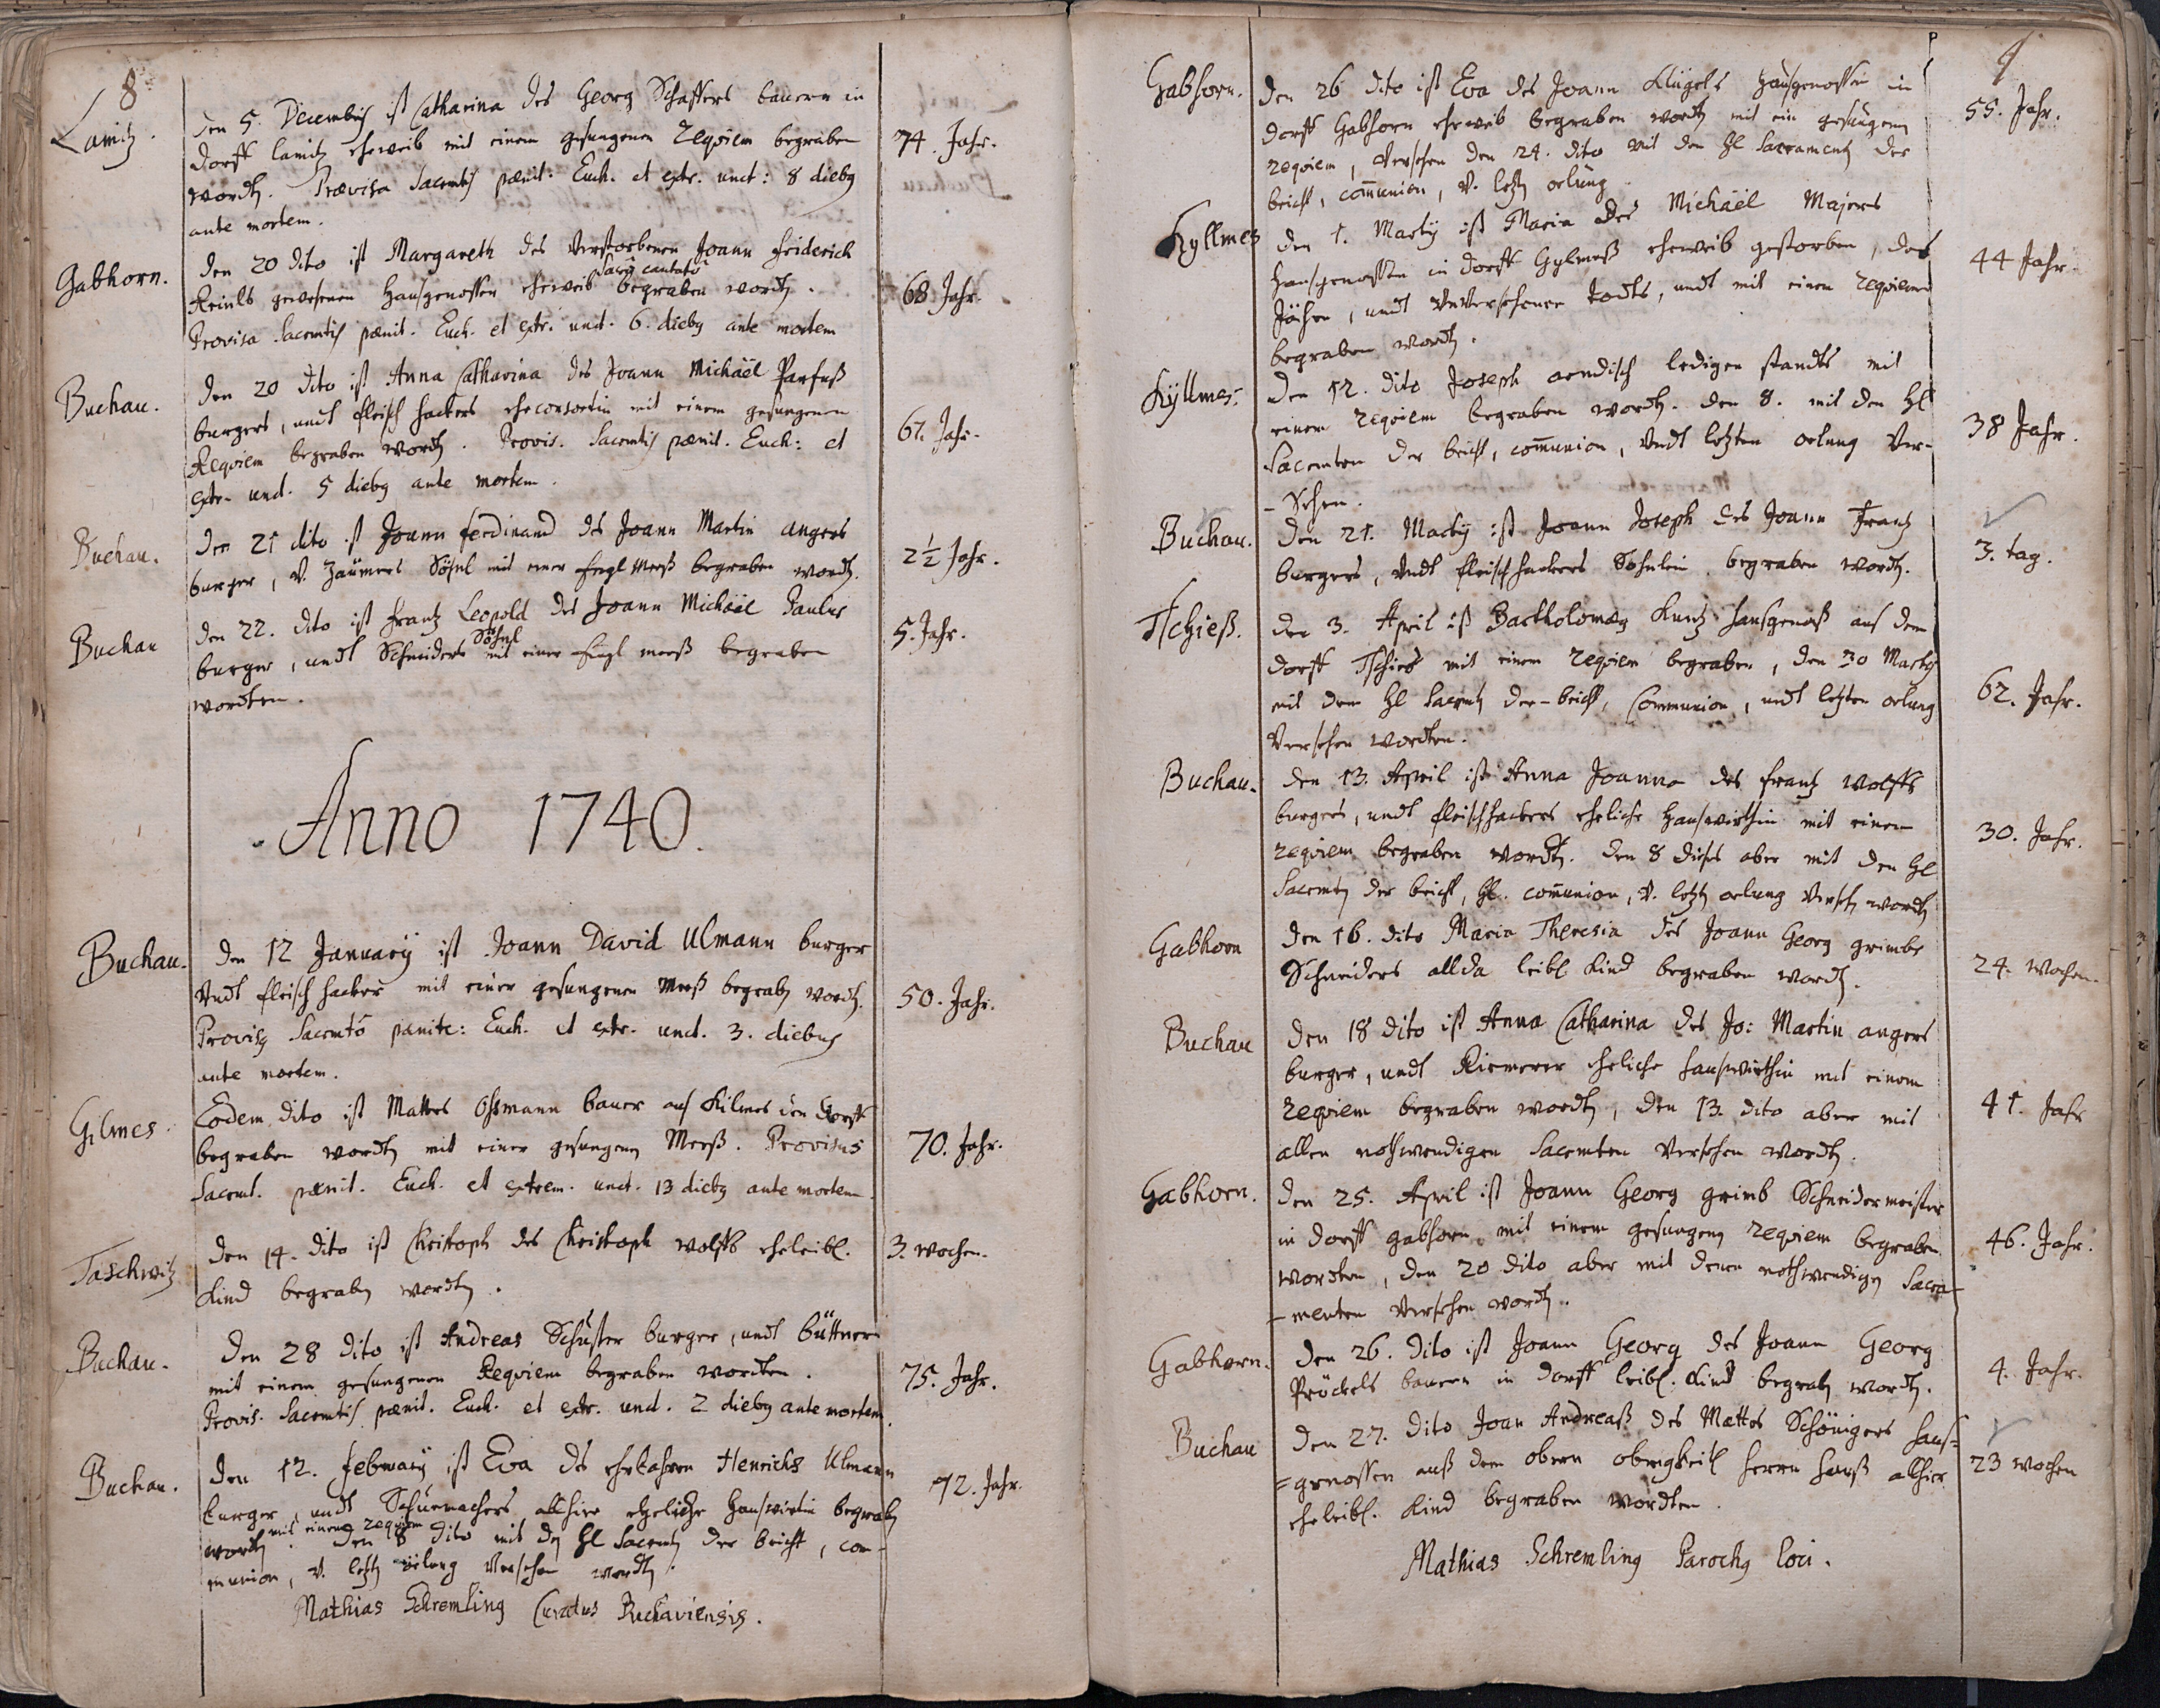 8
Lamitz.
den 5. Decembris ist Catharina des Georg Schaffers bauern in
dorff lamitz eheweib mit einem gesungenen Requiem begraben
74. Jahr.
wordtn. Provisa Sacramtis pœnit: Euch. et extr. unct: 8 diebus
ante mortem.
Gabhorn.
den 20 dito ist Margareth des verstorbenen Joann friderich
Reinls gewesenen Hausgenossen eheweib sacro cantato begraben wordtn.
68 Jahr.
Provisa Sacramtis pœnit. Euch. et extr. unct. 6. diebus ante mortem
Buchau.
den 20 dito ist Anna Catharina des Joann Michäel Parfuß
burgers, undt fleischhackers eheconsortin mit einem gesungenen
67. Jahr.
Requiem begraben wordtn. Provis. Sacramtis pœnit. Euch: et
extr. unct. 5 diebus ante mortem.
Buchau.
den 21 dito ist Joann ferdinand des Joann Martin angers
burger, v. Zäumers Söhnl mit einer Engl Meeß begraben wordtn.
2½ Jahr.
Buchau
den 22. dito ist frantz Leopold des Joann Michäel Paulus
burger, undt Schneiders Söhnl mit einer Engl meeß begraben
5. Jahr.
wordten.
Anno 1740.
Buchau.
den 12 January ist Joann David Ulmann burger
undt fleischhacker mit einer gesungenen Meeß begrabn wordtn.
50. Jahr.
Provisus Sacramto pœnite: Euch. et extr. unct. 3. diebus
ante mortem.
Gilmes.
Eodem dito ist Mattes Ossmann bauer aus Kilmes den dorff
begraben wordtn mit einer gesungenen Meeß. Provisus
70. Jahr.
Sacramt. pœnit. Euch. et extrem. unct. 13 diebus ante mortem.
Taschwitz
den 14. dito ist Christoph des Christoph wolffs eheleibl.
3. wochen.
Kind begrabn wordtn.
Buchau.
den 28 dito ist Andreas Schuster burger, undt büttner
mit einem gesungenen Requiem begraben wordten.
75. Jahr.
Provis. Sacramtis pœnit. Euch. et extr. unct. 2 diebus ante mortem.
Buchau.
den 12. february ist Eva des Henrichs Ulmann
burger, undt Schuemachers allhier eheliche Hauswirtin begrabn
72. Jahr.
wordtn mit einem requiem. den 8 dito mit dn Hl Sacramtn der beicht, com-
munion, v. letztn ölung versehen wordtn.
Mathias Schremling Curatus Buchaviensis.
9
Gabhorn.
den 26 dito ist Eva des Joann Klügels Hausgenossen in
dorff Gabhorn eheweib begraben wordtn mit ein gesungenen
55. Jahr.
requiem, versehen den 24. dito mit den Hl Sacramentn der
beicht, com̄union, v. letztn oelung
Kyllmes
den 1. Marty ist Maria des Michäel Majers
Hausgenossen in dorff Gylmeß eheweib gestorben, des
44 Jahr.
Jähen, undt Unversehenen todts, undt mit einem Requiem
begraben wordtn.
Kyllmes.
den 12. dito Joseph aendisch ledigen standts mit
einem Requiem begraben wordtn. den 8. mit den Hl
38 Jahr.
Sacramten der beicht, com̄union, Undt letzten oelung Ver-
-sehen.
Buchau.
den 21. Marty ist Joann Joseph des Joann Frantz
3. tag.
burgers, Undt fleischhackers Söhnlein begraben wordtn.
Tschieß.
den 3. April ist Bartholomæus Kuntz hausgenoß aus dem
dorff Tschies mit einem requiem begraben, den 30 Marty
62. Jahr.
mit dem Hl Sacramtn der beicht, Communion, undt letzten oelung
Versehen wordten.
Buchau.
den 13. April ist Anna Joanna des frantz wolffs
burgers, undt fleischhackers eheliche Hauswirthin mit einem
30. Jahr.
requiem begraben wordtn. den 8 dieses aber mit den Hl
Sacramtn der beicht, Hl. com̄union, v. letztn oelung versehn wordtn
Gabhorn
den 16. dito Maria Theresia des Joann Georg grimbs
Schneiders allda leibl Kind begraben wordtn.
24. wochen.
Buchau
den 18 dito ist Anna Catharina des Jo: Martin angers
burger, undt Riemerer eheliche hauswirthin mit einem
requiem begraben wordtn, den 13. dito aber mit
41. Jahr
allen nothwendigen Sacramten versehen wordtn.
Gabhorn.
den 25. April ist Joann Georg grimb Schneidermeister
in dorff gabhorn mit einem gesungenen requiem begraben
46. Jahr.
wordten, den 20 dito aber mit denen nothwendigen Sacra-
-menten versehen wordtn.
Gabhorn.
den 26. dito ist Joann Georg des Joann Georg
4. Jahr.
Pröckels bauern in dorff leibl. Kind begrabn wordtn.
Buchau
den 27. dito Joan Andreaß des Mattes Schönigers haus=
=genossen auß dem obern obrigkeitl herrn hauß allhier
23 wochen
eheleibl. Kind begraben wordten.
Mathias Schremling Parochus loci.